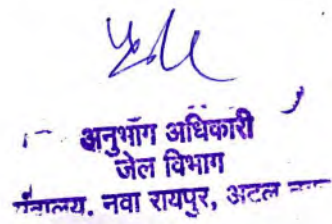 अनुभाग अधिकारी
जेल विभाग
मंत्रालय, नवा रायपुर, अटल नगर